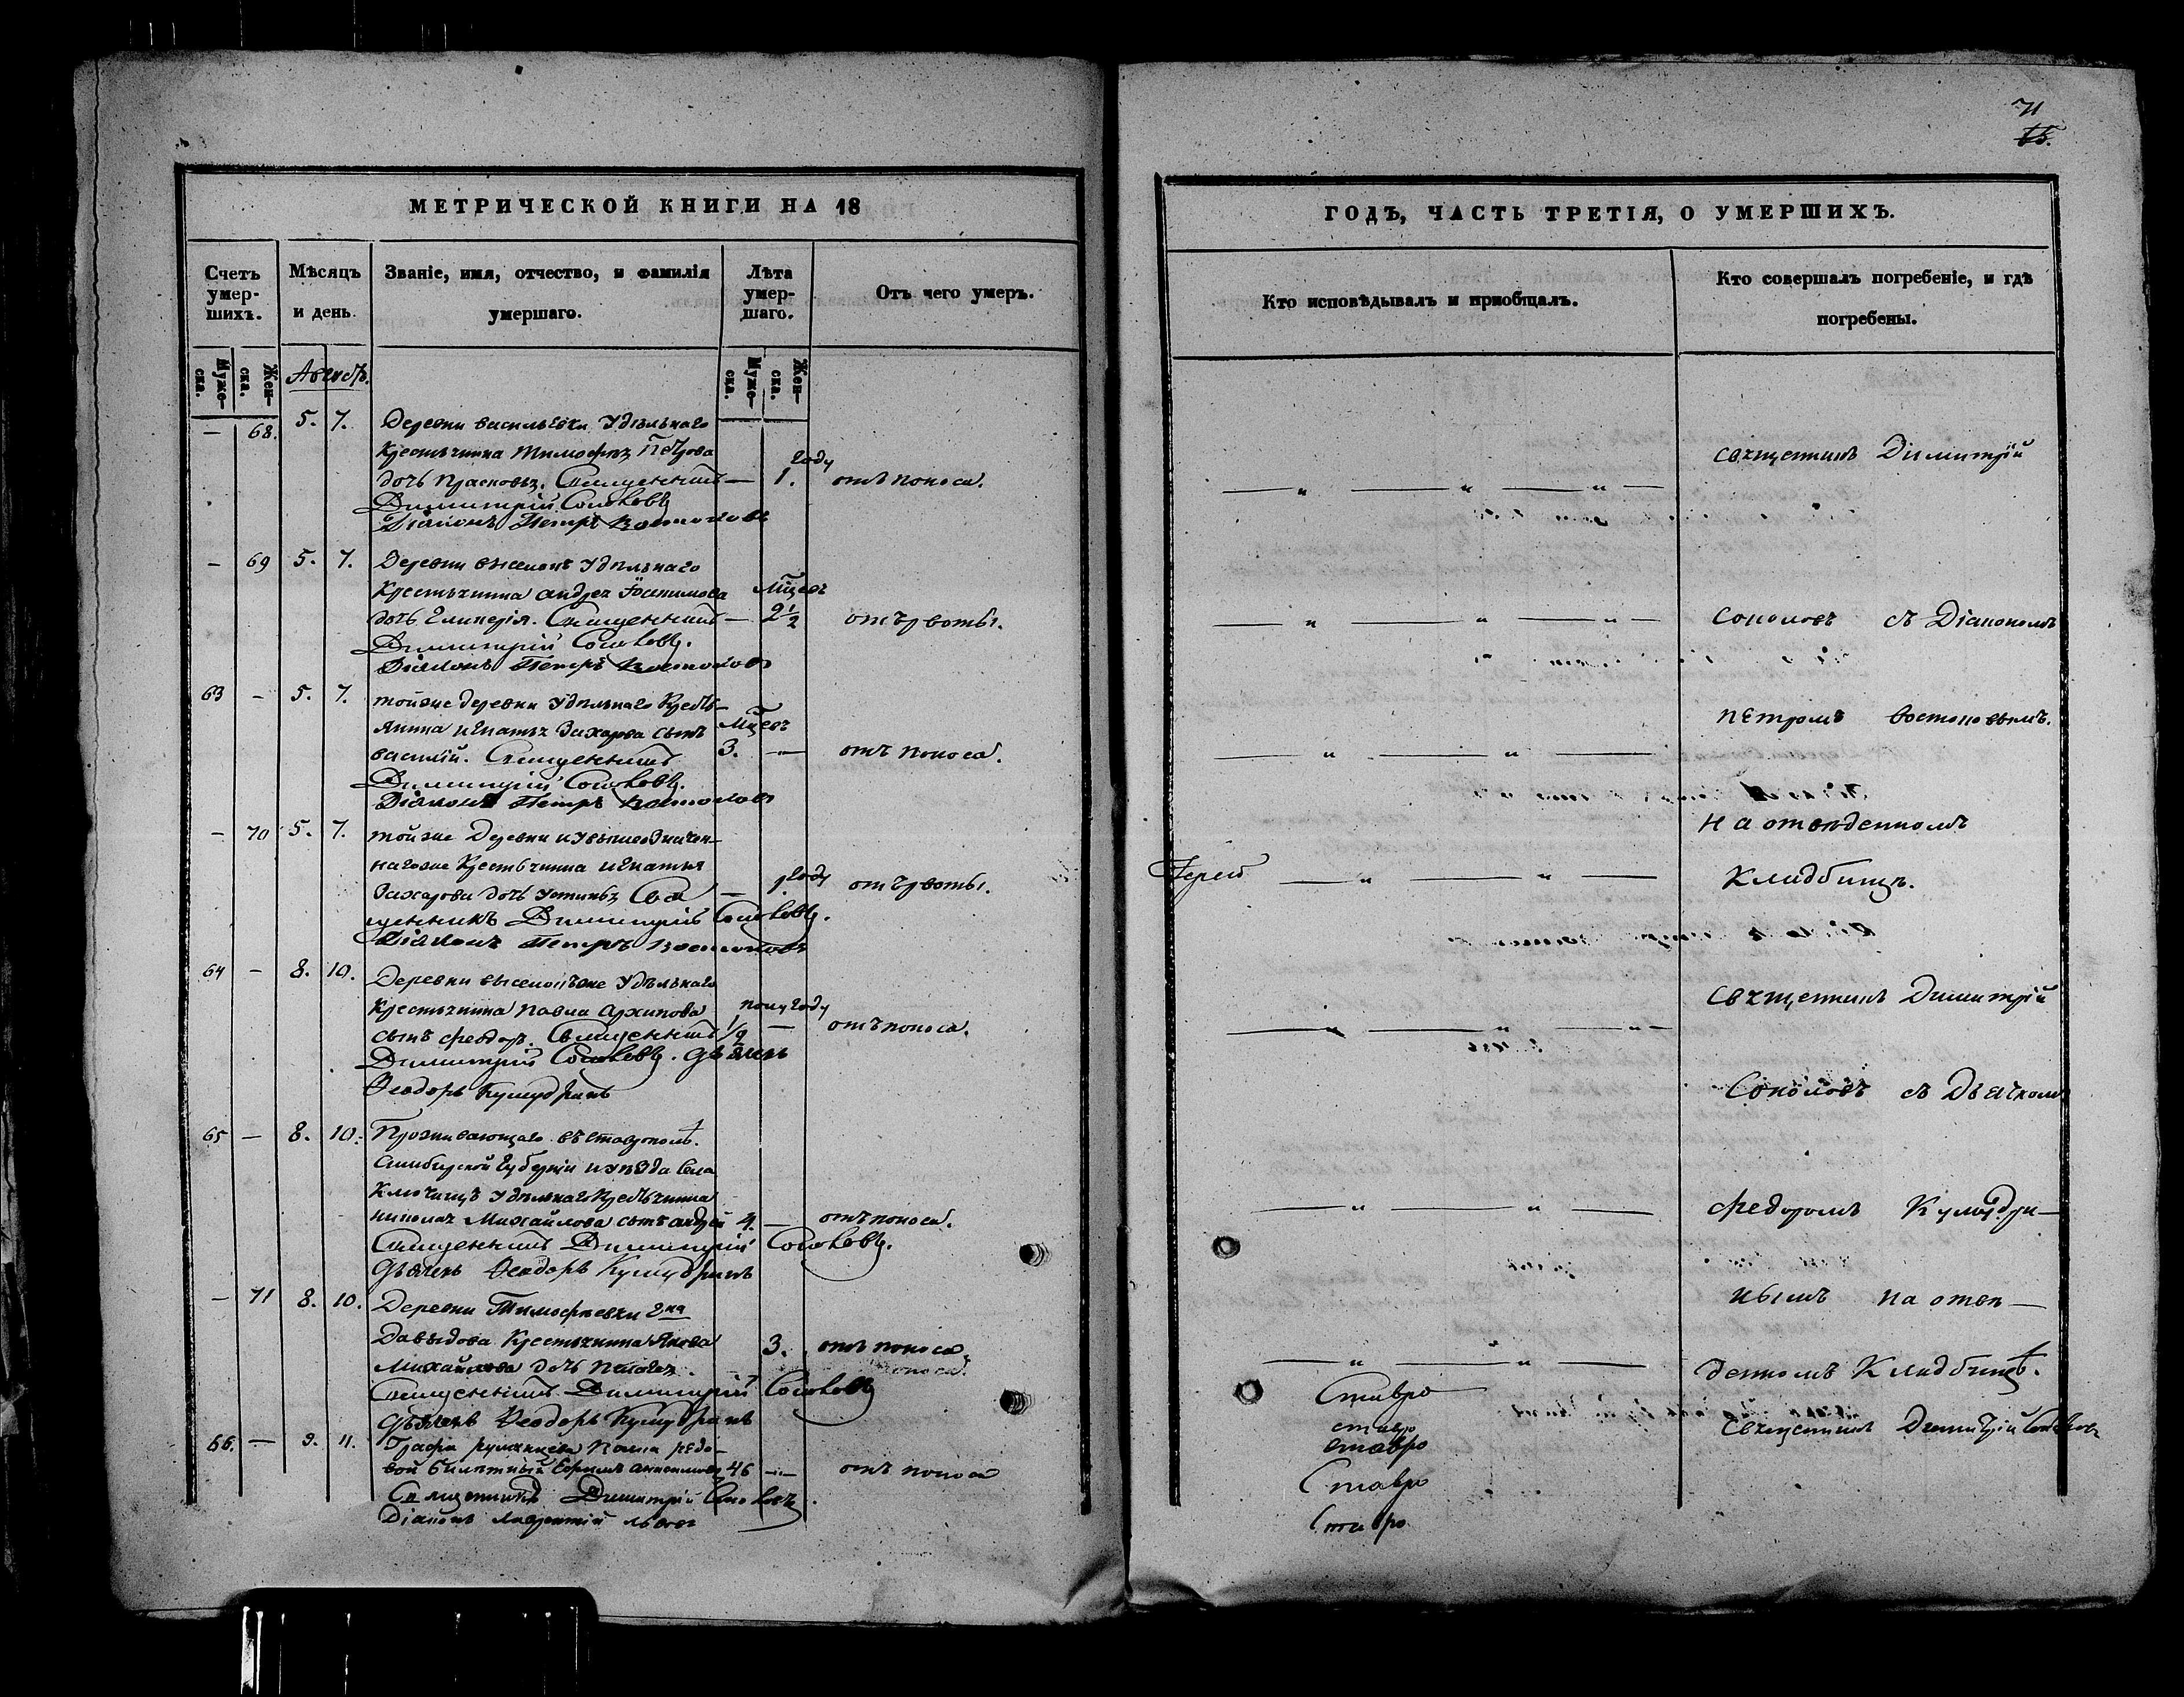 71
65.
МЕТРИЧЕСКОЙ КНИГИ НА 18
ГОДЪ, ЧАСТЬ ТРЕТІЯ, О УМЕРШИХЪ.
Счетъ умер-шихъ.
Мѣсяцъ и день.
Званіе, имя, отчество, и фамилія умершаго.
Лѣта умер-шаго.
Отъ чего умеръ.
Кто исповѣдывалъ и пріобщалъ.
Кто совершалъ погребеніе, и гдѣ погребены.
Муже-ска.
Жен-ска.
Муже-ска.
Жен-ска.
— 68. 5. 7. Деревни васильевки Удѣльнаго
Крестьянина Тимофея Петрова
году
дочь Прасковья. Священникъ — 1. отъ поноса.
Димитрій Соколовъ
Діаконъ Петръ Востоковъ
— 69 5. 7. Деревни выселокъ Удѣльнаго
Крестьянина андрея
дочь Гликерія. Священникъ — 2½ отъ рвоты.
Димитрій Соколовъ.
Діаконъ Петръ Востоковъ
63 — 5. 7. тойже деревни Удѣльнаго Кресть-
янина игнатья Захарова сынъ
василій. Священникъ 3. — отъ поноса.
Димитрій Соколовъ.
Діаконъ Петръ Востоковъ
— 70 5. 7. тойже Деревни и вышеозначен-
нагоже Крестьянина игнатья
Захарова дочь устинья Свя — 1. году отъ рвоты.
щенникъ Димитрій Соколовъ.
Діаконъ Петръ Востоковъ
64 — 8. 10. Деревни Удѣльнаго
Крестьянина Павла Архипова полугоду
сынъ феодоръ. Священникъ 1/2 — отъ поноса.
Димитрій Соколовъ. Дьячекъ
Феодоръ Кумудринъ
65 — 8. 10. Проживающаго въ ставрополѣ
Симбирской Губерніи и уѣзда Села
Ключищъ Удѣльнаго Крестьянина
николая Михайлова сынъ андрей 4. — отъ поноса.
Священникъ Димитрій Соколовъ.
Дьячекъ Феодоръ Кумудринъ
— 71 8. 10. Деревни Тимофѣевки
Давыдова Крестьянина Якова 3. отъ поноса
Михайлова дочь поноса.
Священникъ Димитрій Соколовъ
Дьячекъ Феодоръ Кумудринъ
66. — 9. 11. Графа румянцева Полка рядо-
вой билетный Ефимъ 46 — отъ поноса
Священникъ Димитрій Соколовъ.
Діаконъ Лаврентій
священникъ Димитрій
Соколовъ съ Діакономъ
Петромъ Востоковымъ.
На отведенномъ
Іерей
Кладбищѣ.
Священникъ Димитрій
Соколовъ съ Дьячкомъ
федоромъ Кумудри-
нымъ на отве-
денномъ Кладбищѣ.
Священникъ Димитрій Соколовъ
Ставро
ставро
ставро
Ставро
Ставро